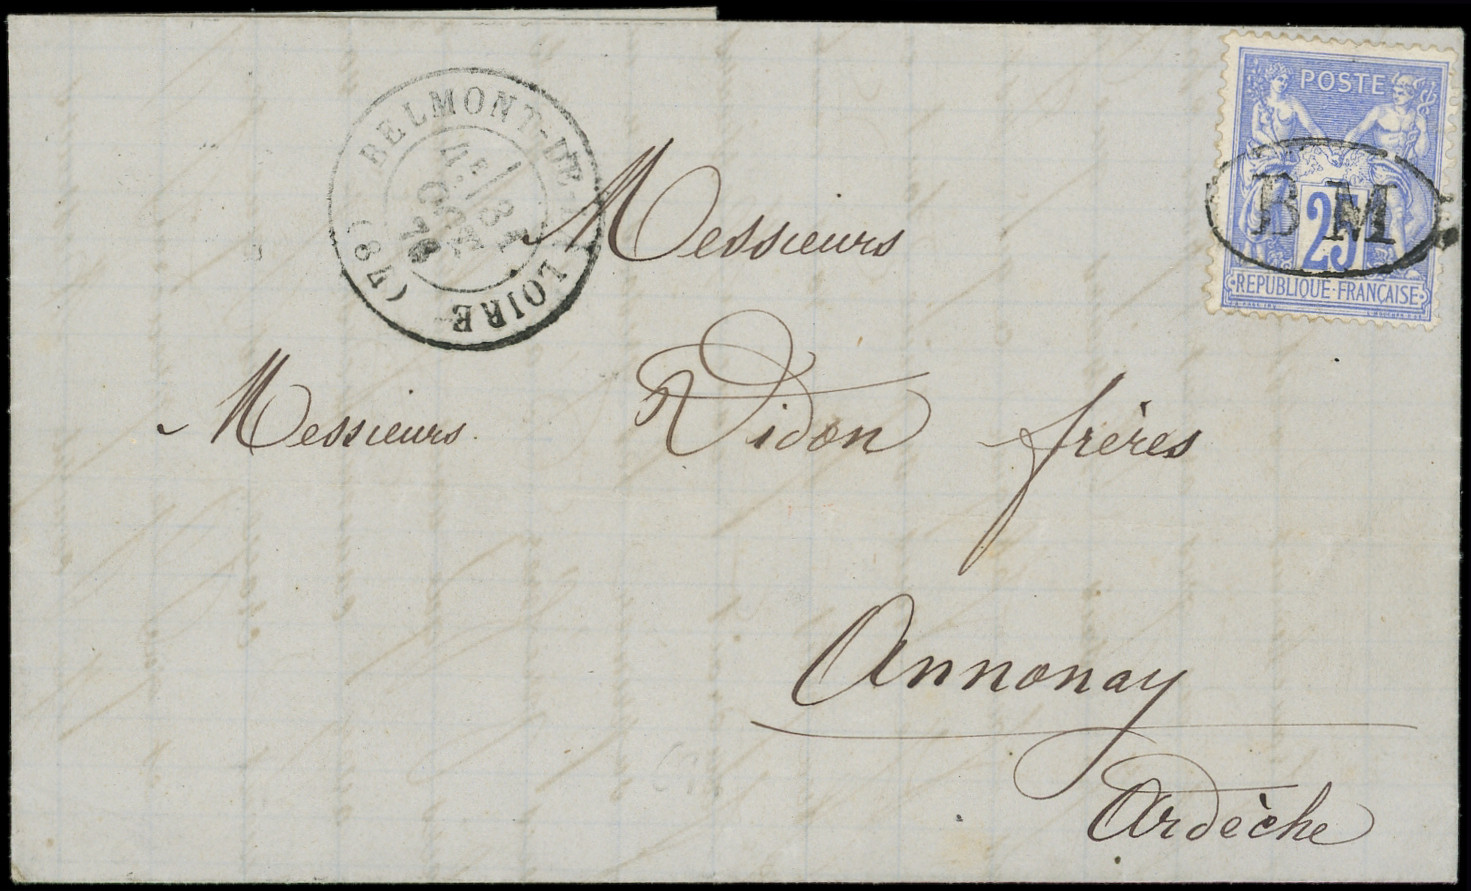 BELMONT-DE-LA LOIRE (78)
4E/ 31
OCT
78
POSTE
25
REPUBLIQUE-FRANÇAISE
BM
Messieurs
Messieurs Vidon frères
Annonay
Ardèche